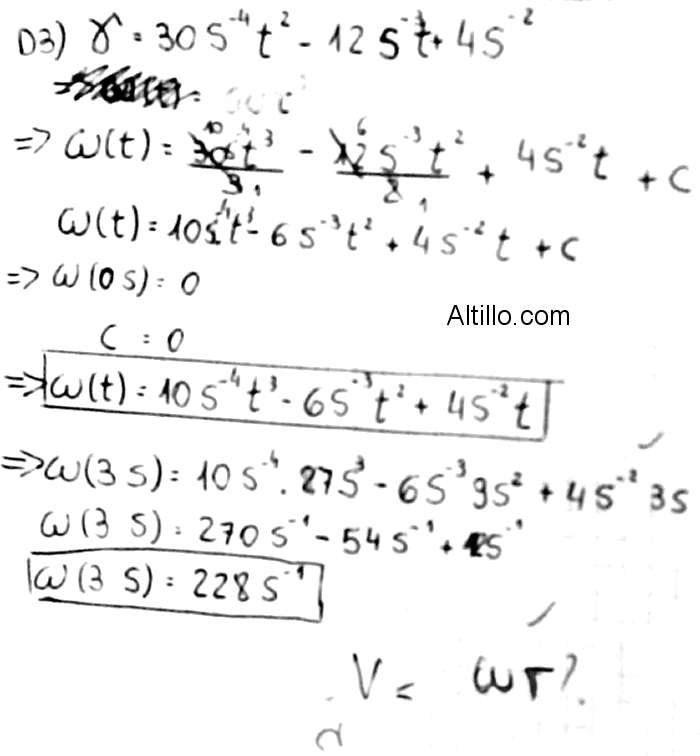 D3) γ = 30 s⁻⁴ t² - 12 s⁻³ t + 4 s⁻²
=> ω(t) = 30 s⁻⁴ t³ / 3 - 12 s⁻³ t² / 2 + 4 s⁻² t + C
ω(t) = 10 s⁻⁴ t³ - 6 s⁻³ t² + 4 s⁻² t + C
=> ω(0 s) = 0
Altillo.com
C = 0
=> ω(t) = 10 s⁻⁴ t³ - 6 s⁻³ t² + 4 s⁻² t
=> ω(3 s) = 10 s⁻⁴ . 27 s³ - 6 s⁻³ 9 s² + 4 s⁻² 3 s
ω(3 s) = 270 s⁻¹ - 54 s⁻¹ + 12 s⁻¹
ω(3 s) = 228 s⁻¹
V = ωr?